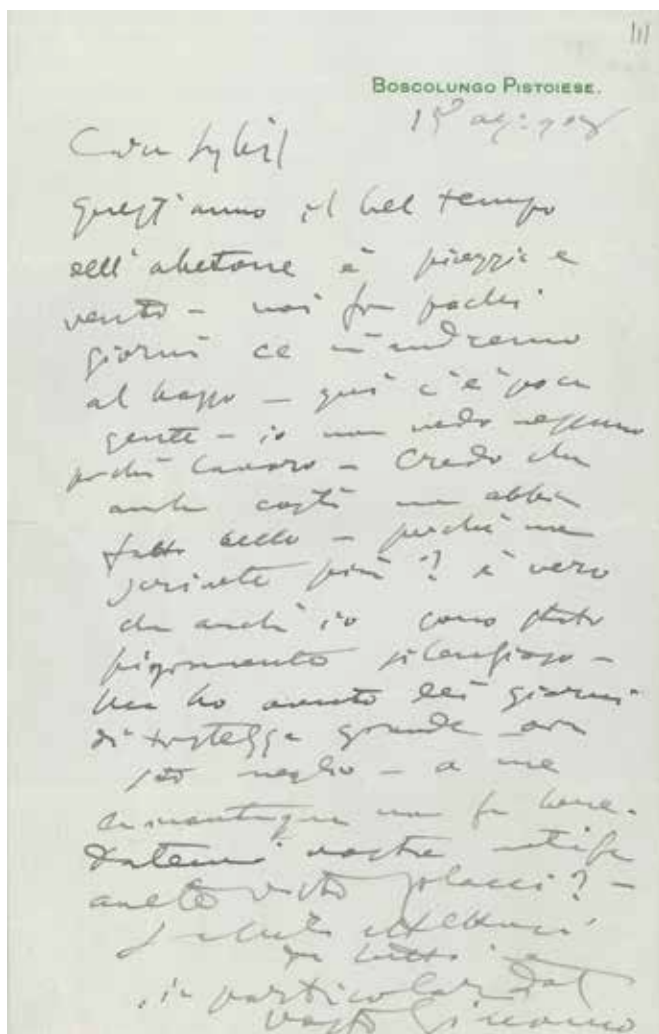 111
BOSCOLUNGO PISTOIESE.
15 ag:
Cara Sybil
Quest'anno il bel tempo
dell'abetone è pioggia e
vento – noi fra pochi
giorni ce n'andremo
al basso – qui c'è poca
gente – io non vedo nessuno
perché lavoro – Credo che
anche costì non abbia
fatto bello – perché non
scrivete più? è vero
che anch'io sono stato
pigramente silenzioso –
Ma ho avuto dei giorni
di tristezza grande ora
sto meglio – a me
la montagna non fa bene.
Datemi vostre notizie
avete visto ?–
Saluti affettuosi
da tutti e
in particolar dal
vostro Giacomo